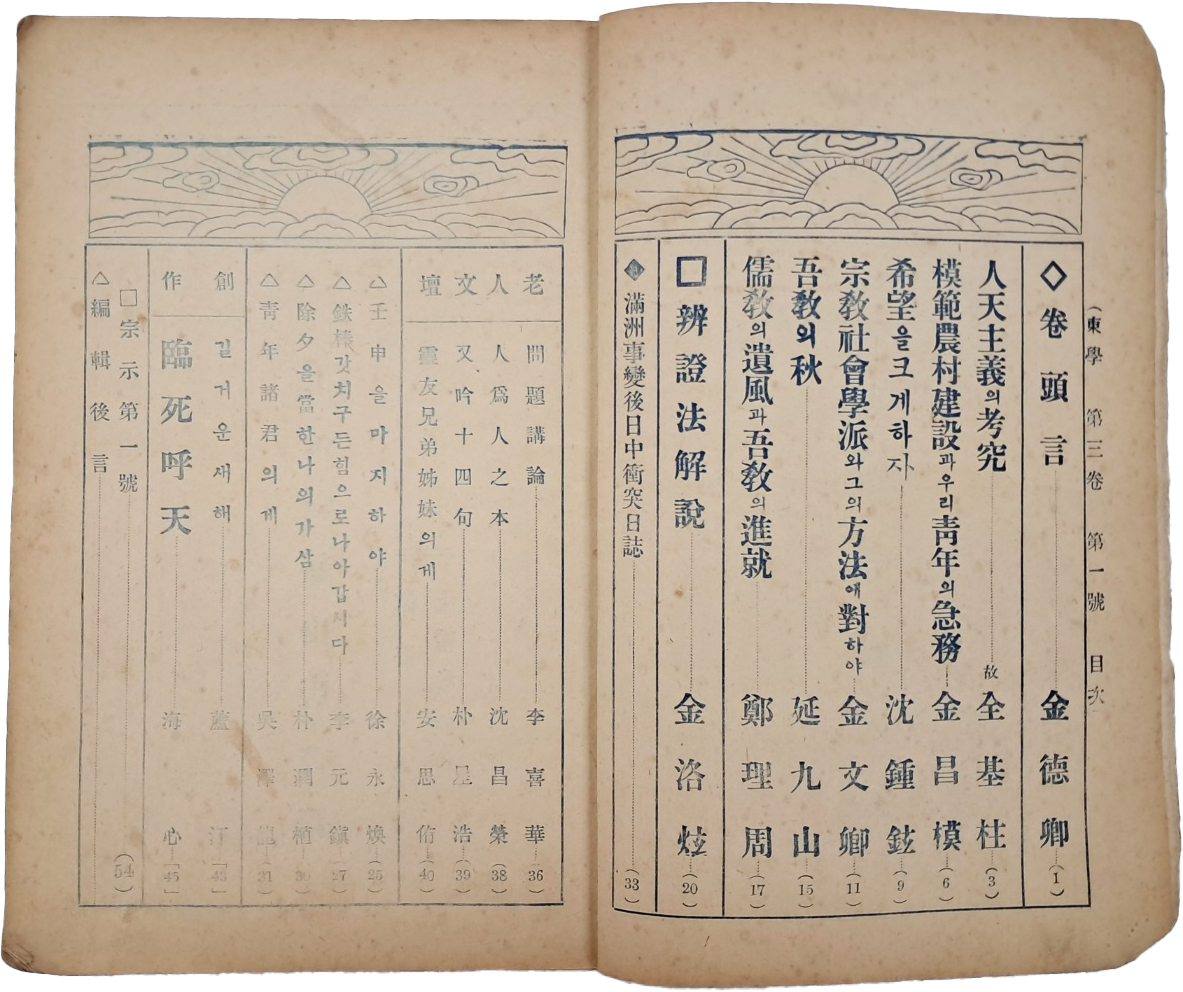 (東學 第三卷 第一號 目次
◇卷頭言 金德卿 (1)
人天主義의考究 故 全基柱 (3)
模範農村建設과우리靑年의急務 金昌模 (6)
希望을크게하자 沈鍾鉉 (9)
宗敎社會學派와그의方法에對하야 金文卿 (11)
吾敎의秋 延九山 (15)
儒敎의遺風과吾敎의進就 鄭理周 (17)
□辨證法解說 金洛炫 (20)
◆滿洲事變後日中衝突日誌 (33)
老人文壇
問題講論 李喜華 (36)
人爲人之本 沈昌榮 (38)
又吟十四句 朴 浩 (39)
靈友兄弟姊妹의게 安思侑 (40)
△壬申을마지하야 徐永煥 (25)
△鉄棒갓치구든힘으로나아갑시다 李元鎭 (27)
△除夕을當한나의가삼 朴 植 (30)
△靑年諸君의게 吳 (31)
創作
길거운새해 藍汀 (43)
臨死呼天 海心 (45)
□宗示第一號
△編輯後言 (54)